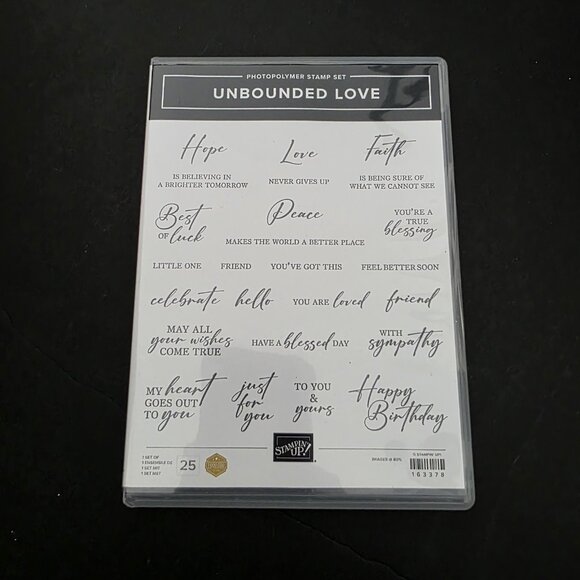 PHOTOPOLYMER STAMP SET
UNBOUNDED LOVE
Hope
IS BELIEVING IN
A BRIGHTER TOMORROW
Love
NEVER GIVES UP
Faith
IS BEING SURE OF
WHAT WE CANNOT SEE
Best
OF luck
Peace
MAKES THE WORLD A BETTER PLACE
YOU'RE A
TRUE
blessing
LITTLE ONE
FRIEND
YOU'VE GOT THIS
FEEL BETTER SOON
celebrate
hello
YOU ARE loved
friend
MAY ALL
your wishes
COME TRUE
HAVE A blessed DAY
WITH
sympathy
MY heart
GOES OUT
TO you
just
for
you
TO YOU
&
yours
Happy
Birthday
1 SET OF
1 ENSEMBLE DE
1 SET MIT
1 SET MET
25
STAMPIN' UP!
IMAGES @ 80%
© STAMPIN' UP!
163378